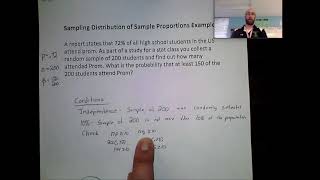 Sampling Distribution of Sample Proportions Example
A report states that 72% of all high school students in the US
attend prom. As part of a study for a stat class you collect a
random sample of 200 students and find out how many
attended Prom. What is the probability that at least 150 of the
200 students attend Prom?
p = .72
n = 200
Conditions
Independence - Sample of 200 was randomly selected
10% - Sample of 200 is not more than 10% of the population
Check np ≥ 10 nq ≥ 10